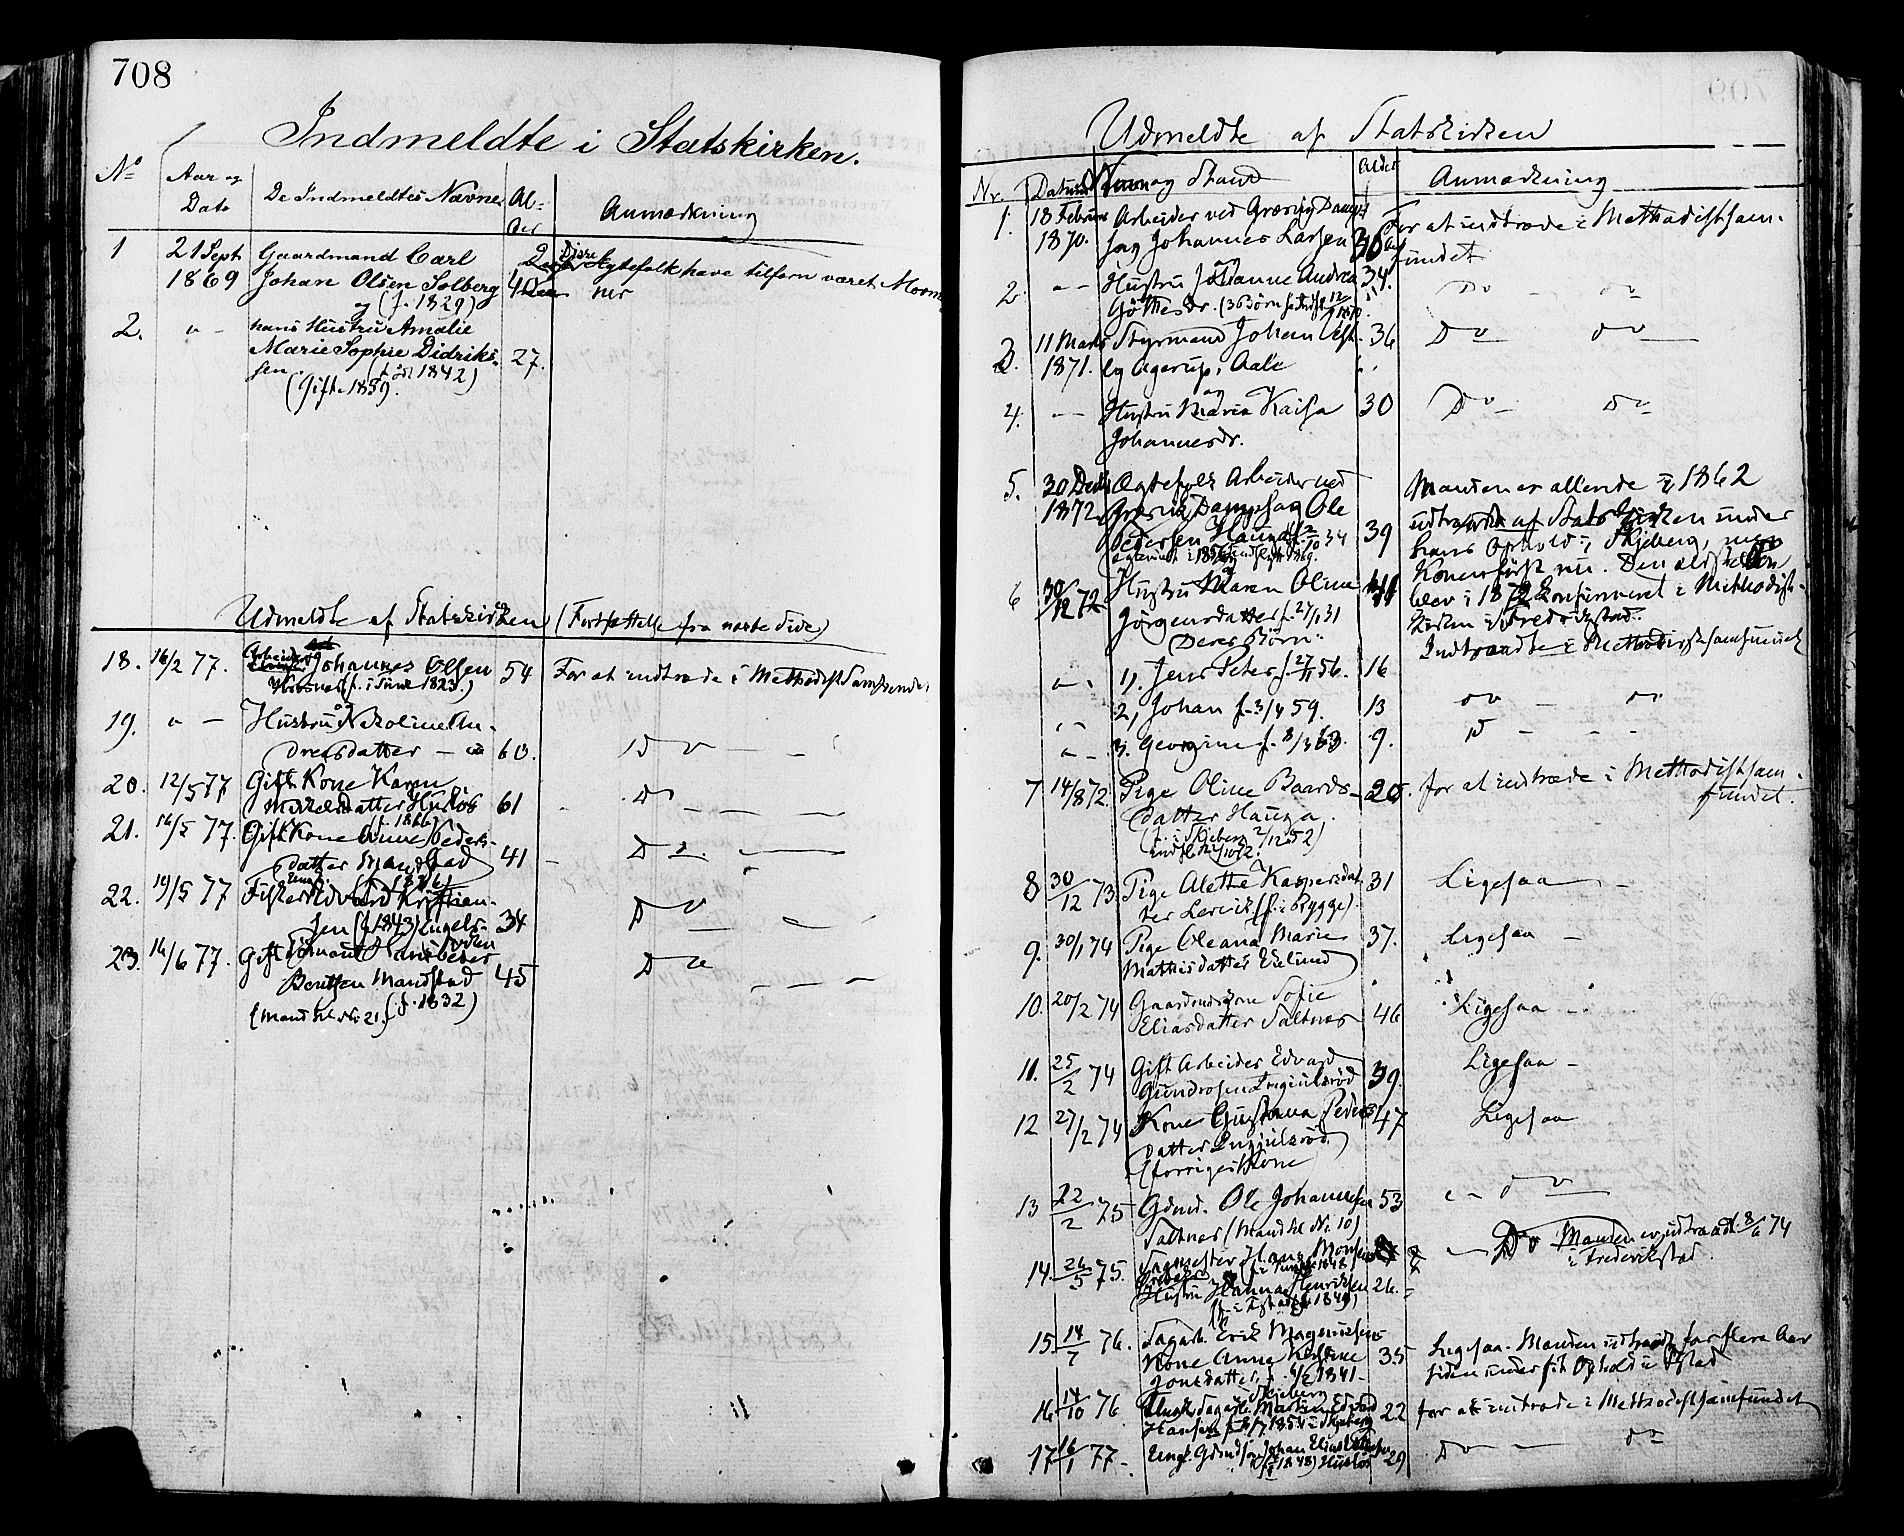 708
Indmeldte i Statskirken.
No Aar og Dato De Indmeldtes Navne Al- der Anmærkning
1 21 Sept Gaardmand Carl Disse Ægtefolk have tilforn været Mormo
1869 Johan Olsen Solberg 40 ner
og (f. 1829)
2. " - hans Hustru Amalie
Marie Sophie Didriks- 27.
sen. 1842)
(Gift 1859).
Udmeldte af Statskirken (Fortsættelse fra næste Side)
18. 16/2 77. Arbeider Johannes Olsen 54 For at indtræde i Methodist Samfundet
(f. i Juni 1823.)
19. " - Hustru Nekoline An-
dreasdatter - 60. Do - -
20. 12/5 77 Gift Kone Karen
datter Huslos 61 Do - -
(f. 1816)
21. 16/5 77. Gift Kone Anne Peders-
datter Mandstad 41 - Do
22. 19/5 77 Fisker Edvard Kristian-
sen (f. 1843) Engels- 34 Do
viken
23. 16/6 77. Gift Hans Peter
Bentsen Mandstad 45 Do
(Mand til No 21.) (f. 1832)
Udmeldte af Statskirken
Nr. Datum Navn og Stand Alder Anmærkning
1. 18 Februar Arbeider ved Græsvig Damp- For at indtræde i Methodistsam-
1870. sag Johannes Larsen 36 fundet
og
2. " - Hustru Johanne Andrea 34. Do - Do
3. 11 Marts Styrmand Johan 36 Do Do
1871. Agerup i Aale
og
4. " - Hustru Maria Kaisa 30 Do - Do
Johannesdr.
5. 30 Decbr Ægtefolk Arbeider ved Manden er allerede i 1862
1872 Græsvik Dampsag Ole udtraadt af Statskirken under
Pedersen Hauga 39 hans Ophold i Skjeberg, men
Konen først nu. Den ældste Søn
6 30/12 72 Hustru Maren Oline 41 blev i 1872 konfirmeret i Methodist-
Jörgensdatter f. 27/1 31 kirken i Fredrikstad.
Deres Börn: Indtraadte i Methodistsamfundet
" - 1). Jens Peter f. 27/11 56. 16
" - 2, Johan f. 3/4 59. 13 Do - Do
" - 3. Georgine f. 8/3 63. 9. D - -
7 14/8 72. Pige Oline Baards- 20. for at indtræde i Methodistsam-
datter Hauga. fundet.
(f. i Skjeberg 2/12 52)
8 30/12 73. Pige Alette Kaspersdat- 31 Ligesaa -
ter Lervik (f. i Rygge).
9. 30/1 74 Pige Oleana Marie 37. Ligesaa -
Mathisdatter Eielund
10. 20/2 74 Gaardmdskone Sofie
Eliasdatter Saltnes 46 Ligesaa
11. 25/2 74 Gift Arbeider Edvard Ligesaa -
Gundrosen Engjulsrød 39.
12 27/2 74 Kone Gustava Peders 47 Ligesaa
datter Engjulsrød
(forriges Kone
13 22/2 75 Gdmd. Ole Johannesen 53 " - do
Saltnes (Mand til No. 10)
14. 26/5 75. Sagmester Hans Monsen - Do Manden er udtraadt 8/6 74
Hustru Hanna Henriksen 26. i Frederikstad
1849)
15. 14/7 76. Sagarb. Erik Magnussens Ligesaa. Manden udtraadt for flere Aar
Kone Anne Kristine 35 siden under sit Ophold i
Jonsdatter f. 4/2 1841 -
Skjeberg
16 14/10 76 Ungk. Sagarb. Martin Edvard 22 for at indtræde i Methodistsamfundet
Hansen f. 8/7 1854 i Skjeberg
17 16/1 77 - Ungk. Gdmdsøn Johan Elias 29 Do - Do
1848) Huslos